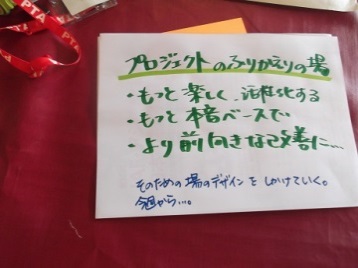 プロジェクトのふりかえりの場
・もっと楽しく、活性化する
・もっと本音ベースで
・より前向きな改善に…
そのための場のデザインをしかけていく。
今週から…。